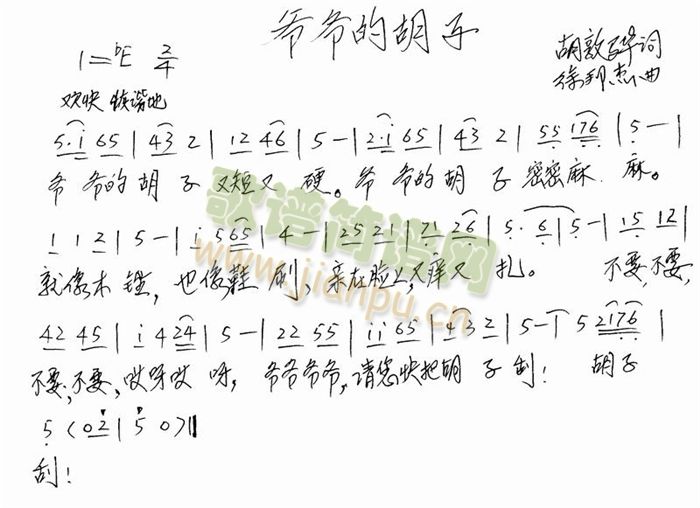 爷爷的胡子
1=ᵇE 2/4
胡敦骅词
徐邦杰曲
欢快 诙谐地
5·i 65 | 43 2 | 12 46 | 5 — | 2·i 65 | 43 2 | 55 176 | 5 — |
爷爷的胡子又短又硬。爷爷的胡子密密麻麻。
1 1 2 | 5 — | i 565 | 4 — | 25 21 | 71 26 | 5· 6 | 5 — | 15 12 |
就像木锉,也像鞋刷,亲在脸上,又痒又扎。不要,不要,
42 45 | i 424 | 5 — | 22 55 | ii 65 | 43 2 | 5 — | 5 2176 |
不要,不要,哎呀哎呀,爷爷爷爷,请您快把胡子刮!胡子
5 (02 | 5 0) ‖
刮!
歌谱简谱网
www.jianpu.cn